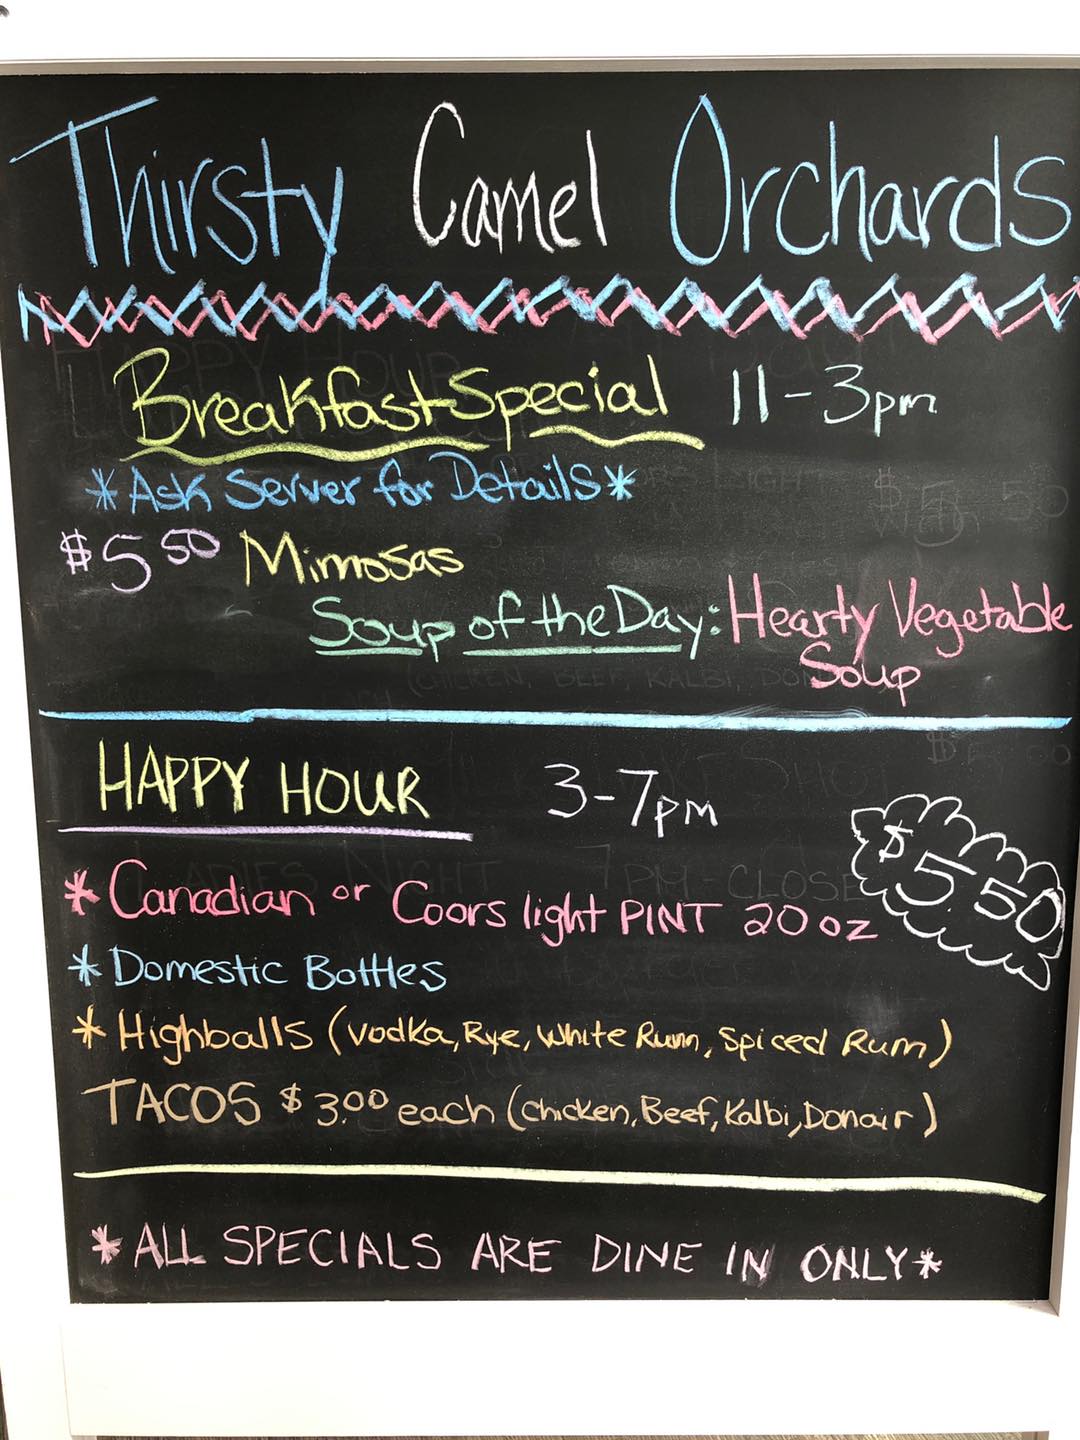 Thirsty Camel Orchards
Breakfast Special 11-3pm
*Ask Server for Details*
$5 50 Mimosas
Soup of the Day: Hearty Vegetable
Soup
HAPPY HOUR 3-7pm
$5.50
*Canadian or Coors light PINT 20 oz
*Domestic Bottles
*Highballs (vodka, Rye, White Rum, Spiced Rum)
TACOS $3.00 each (Chicken, Beef, Kalbi, Donair)
*ALL SPECIALS ARE DINE IN ONLY*